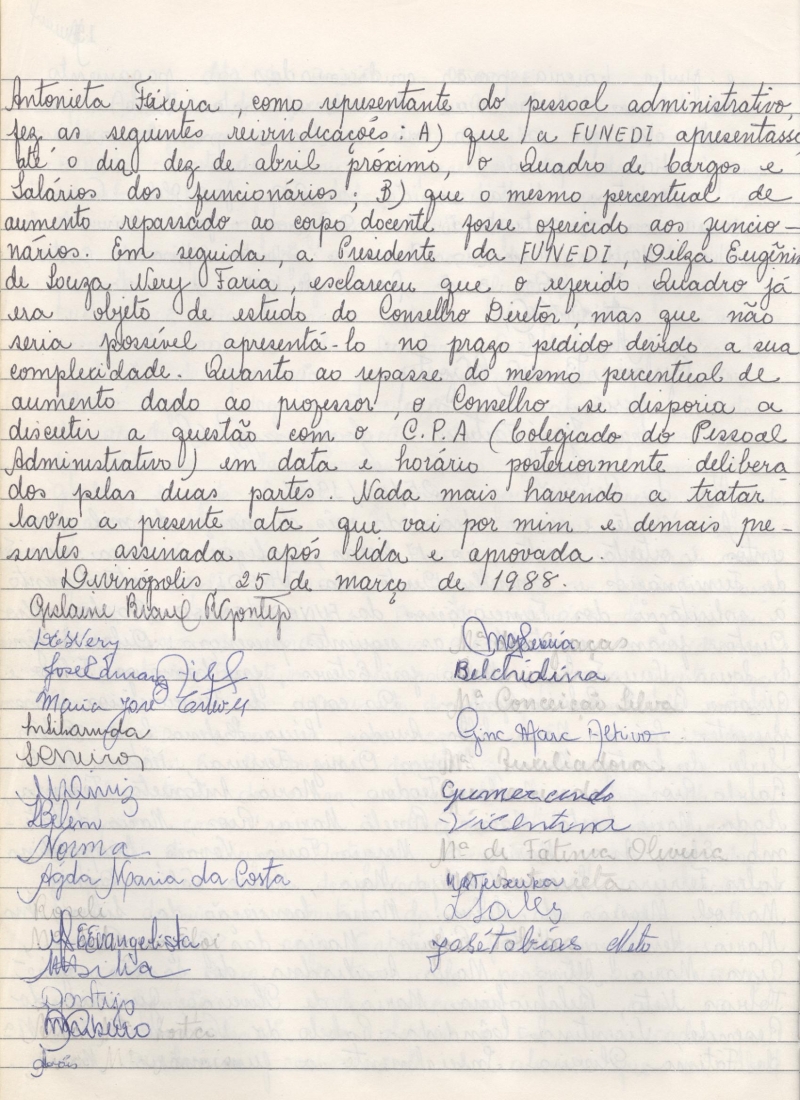 Antonieta Teixeira, como representante do pessoal administrativo,
fez as seguintes reivindicações: A) que a FUNEDI apresentasse
até o dia dez de abril próximo, o Quadro de Cargos e
Salários dos funcionários; B) que o mesmo percentual de
aumento repassado ao corpo docente fosse oferecido aos funcio-
nários. Em seguida, a Presidente da FUNEDI, Dilza Eugênia
de Souza Nery Faria, esclareceu que o referido Quadro já
era objeto de estudo do Conselho Diretor, mas que não
seria possível apresentá-lo no prazo pedido devido a sua
complexidade. Quanto ao repasse do mesmo percentual de
aumento dado ao professor, o Conselho se disporia a
discutir a questão com o C.P.A (Colegiado do Pessoal
Administrativo) em data e horário posteriormente delibera
dos pelas duas partes. Nada mais havendo a tratar
lavro a presente ata que vai por mim e demais pre-
sentes assinada após lida e aprovada.
Divinópolis 25 de março de 1988.
Gislaine
Belchidina
Maria José
Mª Conceição Silva
Mª Auxiliadora
Gumercindo
Belém Vicentina
Norma Mª de Fátima Oliveira
Agda Maria da Costa MATeixeira
Evangelista José Tobias Neto
MRibeiro